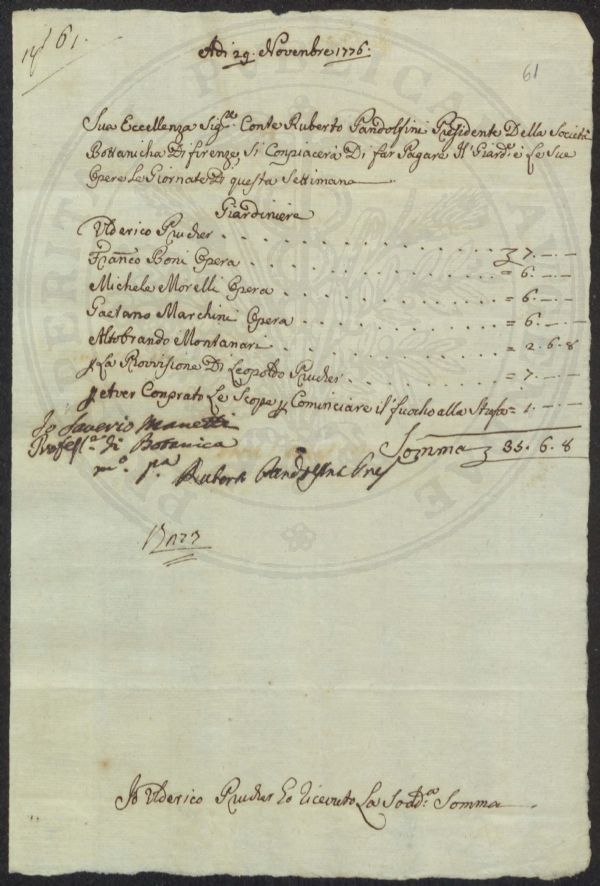 61.
Adi 29. Novenbre 1776.
61
Sua Eccellenza Sig.re Conte Ruberto Pandolfini Presidente Della Società
Bottanicha Di firenze, Si Conpiacerà Di far Pagare Il Giard.e e Le Sue
Opere Le Giornate Di questa Settimana
Giardiniere
Ulderico Prucher . . . . . . . . . . £ 7. — . —
Franco Boni Opera . . . . . . . . . . = 6. — . —
Michele Morelli Opera . . . . . . . . . . = 6. — . —
Gaetano Marchini Opera . . . . . . . . . . = 6. — . —
Altobrando Montanari . . . . . . . . . . = 2. 6. 8
p La Provvisione Di Leopoldo Prucher . . . . . = 7. — . —
p Aver Conprato Le Scope p Cominciare il fuocho alla Stufa = 1. — . —
Somma £ 35. 6. 8
Io Saverio Manetti
Profess.e di Botanica
m.o p.a
Ruberto Pandolfini Pres
Io Ulderico Prucher Ho Ricevuto La Sodd.a Somma